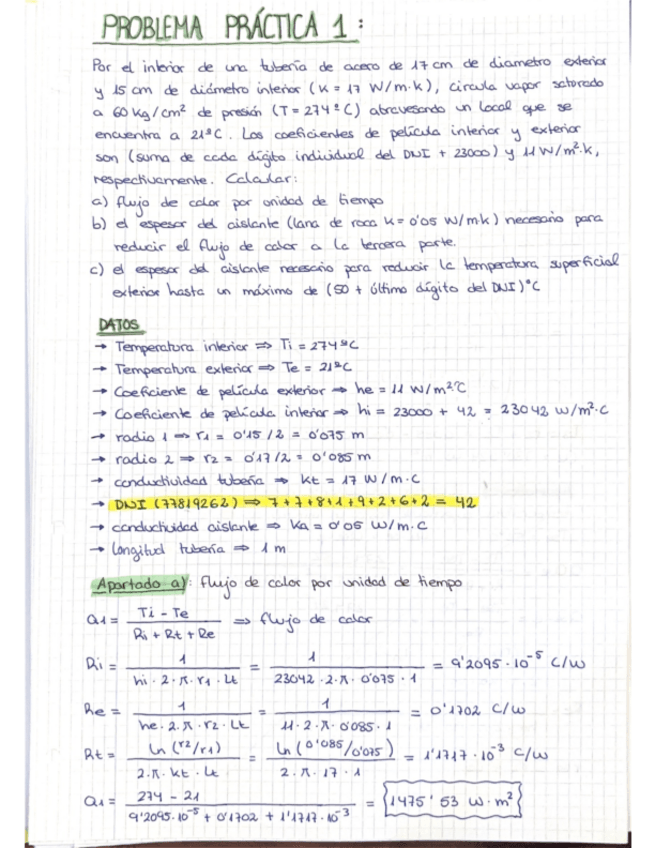 PROBLEMA PRÁCTICA 1:
Por el interior de una tubería de acero de 17 cm de diametro exterior
y 15 cm de diámetro interior (K = 17 W/m·k), circula vapor saturado
a 60 kg/cm² de presión (T = 274ºC) atravesando un local que se
encuentra a 21ºC. Los coeficientes de película interior y exterior
son (suma de cada dígito individual del DNI + 23000) y 11 W/m²·k,
respectivamente. Calcular:
a) flujo de calor por unidad de tiempo
b) el espesor del aislante (lana de roca k = 0'05 W/mk) necesario para
reducir el flujo de calor a la tercera parte.
c) el espesor del aislante necesario para reducir la temperatura superficial
exterior hasta un máximo de (50 + último dígito del DNI)ºC
DATOS
→ Temperatura interior ⇒ Ti = 274ºC
→ Temperatura exterior ⇒ Te = 21ºC
→ Coeficiente de película exterior ⇒ he = 11 W/m²ºC
→ Coeficiente de película interior ⇒ hi = 23000 + 42 = 23042 W/m²·C
→ radio 1 ⇒ r1 = 0'15/2 = 0'075 m
→ radio 2 ⇒ r2 = 0'17/2 = 0'085 m
→ conductividad tubería ⇒ kt = 17 W/m·C
→ DNI (77819262) ⇒ 7+7+8+1+9+2+6+2 = 42
→ conductividad aislante ⇒ Ka = 0'05 W/m·C
→ longitud tubería ⇒ 1 m
Apartado a): flujo de calor por unidad de tiempo
Q1 = Ti - Te / Ri + Rt + Re ⇒ flujo de calor
Ri = 1 / hi·2·π·r1·Lt = 1 / 23042·2·π·0'075·1 = 9'2095·10⁻⁵ C/W
Re = 1 / he·2·π·r2·Lt = 1 / 11·2·π·0'085·1 = 0'1702 C/W
Rt = ln (r2/r1) / 2·π·kt·Lt = ln (0'085/0'075) / 2·π·17·1 = 1'1717·10⁻³ C/W
Q1 = 274 - 21 / 9'2095·10⁻⁵ + 0'1702 + 1'1717·10⁻³ = 1475'53 W·m²